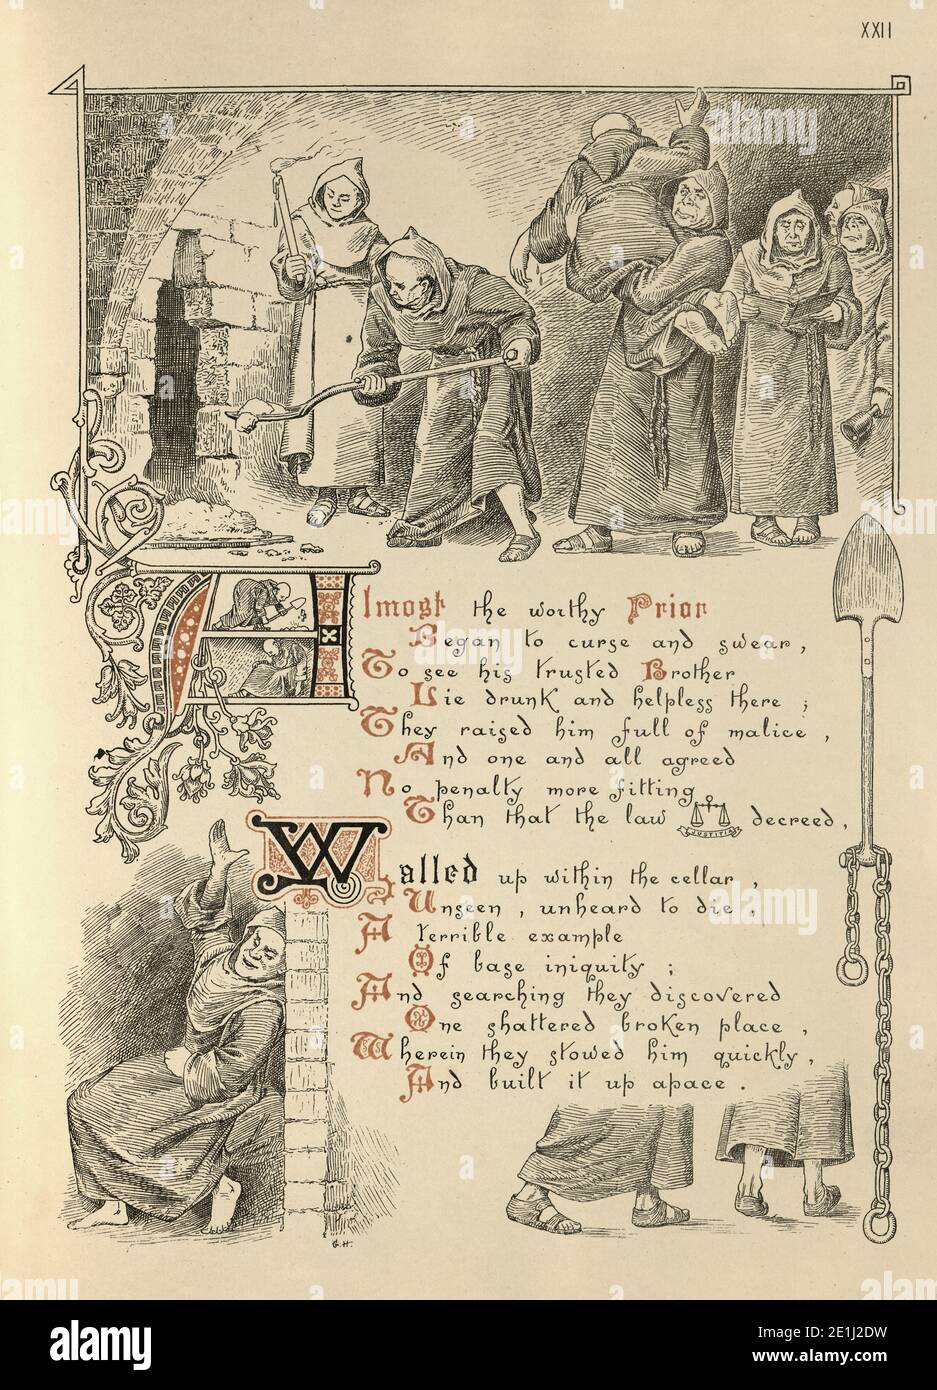 XXII
Almost the worthy Prior
Began to curse and swear,
To see his trusted Brother
Lie drunk and helpless there;
They raised him full of malice,
And one and all agreed
No penalty more fitting
Than that the law JUSTITIA decreed,
Walled up within the cellar,
Unseen, unheard to die,
A terrible example
Of base iniquity;
And searching they discovered
One shattered broken place,
Wherein they stowed him quickly,
And built it up apace.
E.H.
alamy
alamy
Image ID: 2E1J2DW
www.alamy.com